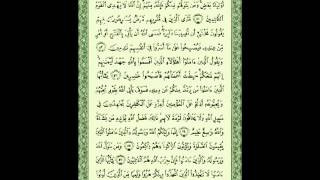 أَوْلِيَآءُ بَعْضٍ وَمَن يَتَوَلَّهُم مِّنكُمْ فَإِنَّهُۥ مِنْهُمْ إِنَّ ٱللَّهَ لَا يَهْدِى ٱلْقَوْمَ
ٱلظَّـٰلِمِينَ ﴿٥١﴾ فَتَرَى ٱلَّذِينَ فِى قُلُوبِهِم مَّرَضٌ يُسَـٰرِعُونَ فِيهِمْ
يَقُولُونَ نَخْشَىٰٓ أَن تُصِيبَنَا دَآئِرَةٌ فَعَسَى ٱللَّهُ أَن يَأْتِىَ بِٱلْفَتْحِ أَوْ أَمْرٍ
مِّنْ عِندِهِۦ فَيُصْبِحُوا۟ عَلَىٰ مَآ أَسَرُّوا۟ فِىٓ أَنفُسِهِمْ نَـٰدِمِينَ ﴿٥٢﴾
وَيَقُولُ ٱلَّذِينَ ءَامَنُوٓا۟ أَهَـٰٓؤُلَآءِ ٱلَّذِينَ أَقْسَمُوا۟ بِٱللَّهِ جَهْدَ أَيْمَـٰنِهِمْ
إِنَّهُمْ لَمَعَكُمْ حَبِطَتْ أَعْمَـٰلُهُمْ فَأَصْبَحُوا۟ خَـٰسِرِينَ ﴿٥٣﴾ يَـٰٓأَيُّهَا
ٱلَّذِينَ ءَامَنُوا۟ مَن يَرْتَدَّ مِنكُمْ عَن دِينِهِۦ فَسَوْفَ يَأْتِى ٱللَّهُ بِقَوْمٍ يُحِبُّهُمْ
وَيُحِبُّونَهُۥٓ أَذِلَّةٍ عَلَى ٱلْمُؤْمِنِينَ أَعِزَّةٍ عَلَى ٱلْكَـٰفِرِينَ يُجَـٰهِدُونَ فِى
سَبِيلِ ٱللَّهِ وَلَا يَخَافُونَ لَوْمَةَ لَآئِمٍ ذَٰلِكَ فَضْلُ ٱللَّهِ يُؤْتِيهِ مَن يَشَآءُ
وَٱللَّهُ وَٰسِعٌ عَلِيمٌ ﴿٥٤﴾ إِنَّمَا وَلِيُّكُمُ ٱللَّهُ وَرَسُولُهُۥ وَٱلَّذِينَ ءَامَنُوا۟ ٱلَّذِينَ
يُقِيمُونَ ٱلصَّلَوٰةَ وَيُؤْتُونَ ٱلزَّكَوٰةَ وَهُمْ رَٰكِعُونَ ﴿٥٥﴾ وَمَن يَتَوَلَّ ٱللَّهَ
وَرَسُولَهُۥ وَٱلَّذِينَ ءَامَنُوا۟ فَإِنَّ حِزْبَ ٱللَّهِ هُمُ ٱلْغَـٰلِبُونَ ﴿٥٦﴾ يَـٰٓأَيُّهَا
ٱلَّذِينَ ءَامَنُوا۟ لَا تَتَّخِذُوا۟ ٱلَّذِينَ ٱتَّخَذُوا۟ دِينَكُمْ هُزُوًا وَلَعِبًا مِّنَ ٱلَّذِينَ